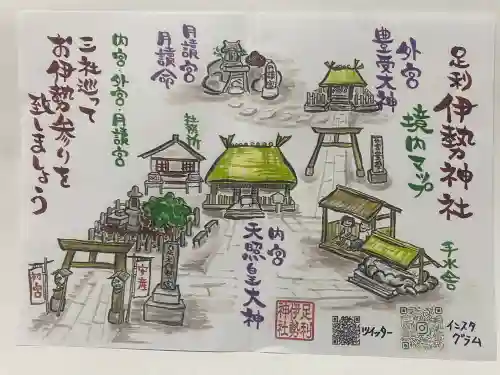 足利 伊勢神社
境内マップ
外宮
豊受大神
月讀宮
月讀命
内宮・外宮・月讀宮
三社巡って
お伊勢参りを
致しましょう
社務所
内宮
天照皇大神
手水舎
初宮
安産
足利
伊勢
神社
ツイッター
インスタ
グラム